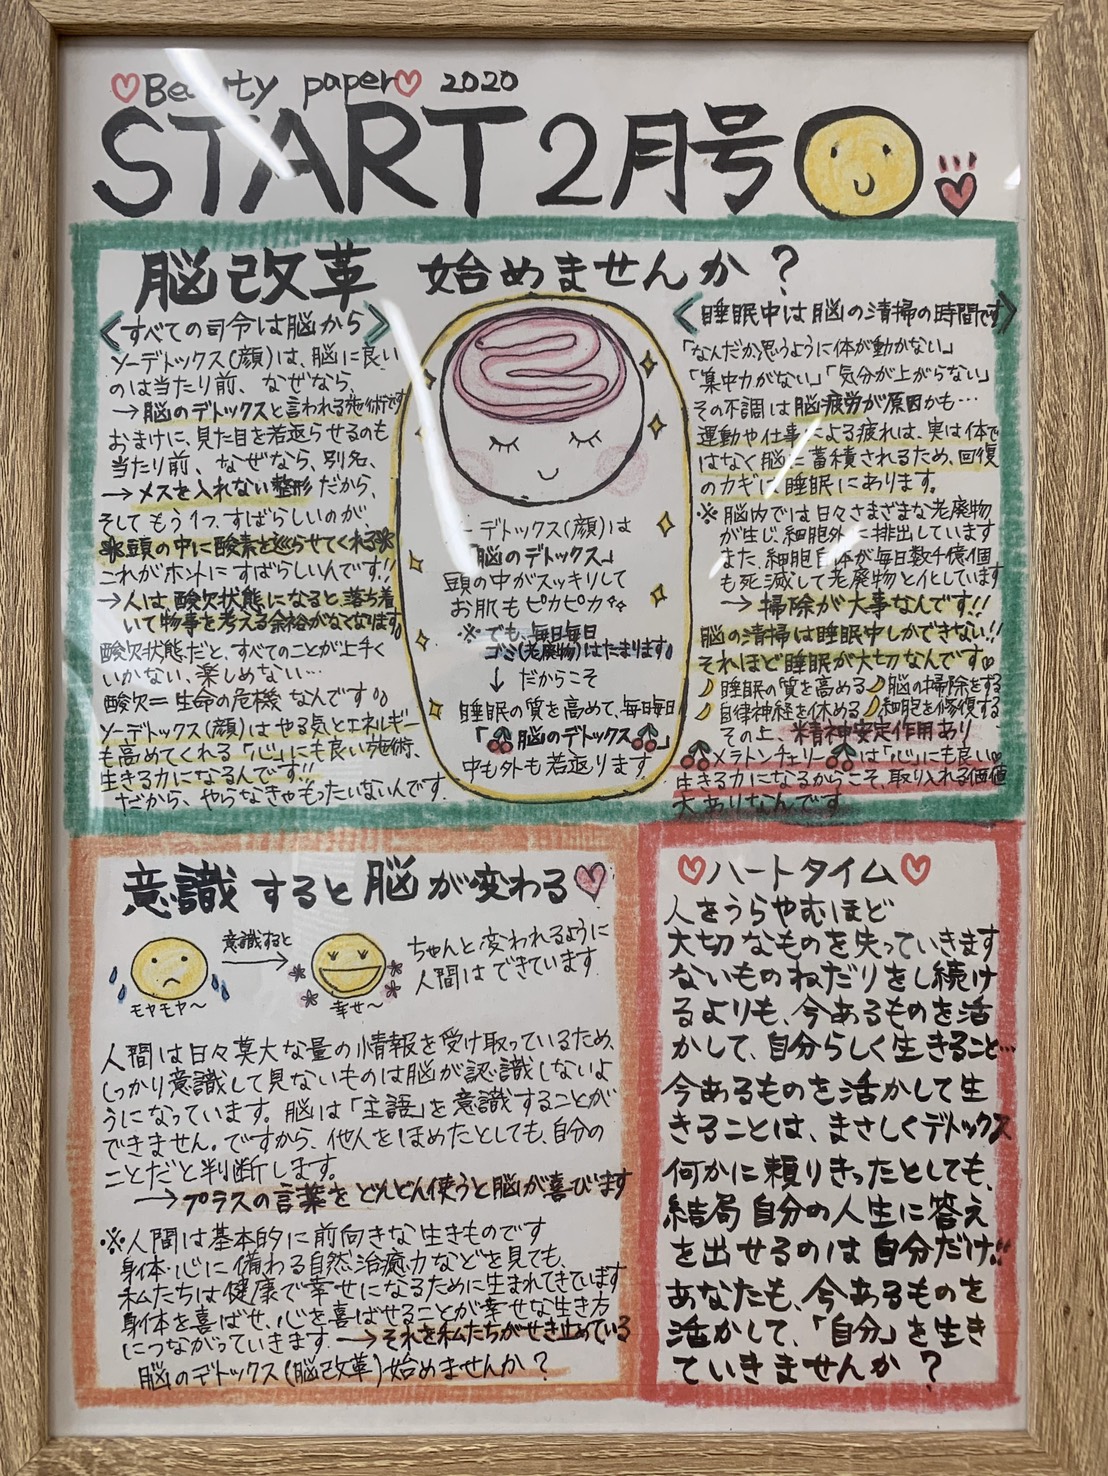 ♡Beauty paper♡ 2020
START 2月号
脳改革 始めませんか?
《すべての司令は脳から》
ソーデトックス(顔)は、脳に良い
のは当たり前、なぜなら、
→脳のデトックスと言われる施術です
おまけに、見た目を若返らせるのも
当たり前、なぜなら、別名、
→メスを入れない整形だから、
そしてもう1つ、すばらしいのが
*頭の中に酸素を巡らせてくれる*
これがホントにすばらしいんです!!
→人は、酸欠状態になると、落ち着
いて物事を考える余裕がなくなります。
酸欠状態だと、すべてのことが上手く
いかない、楽しめない…
酸欠=生命の危機なんです。。
ソーデトックス(顔)はやる気とエネルギー
も高めてくれる「心」にも良い施術、
生きる力になるんです!!
だから、やらなきゃもったいないんです.
ーデトックス(顔)は
「脳のデトックス」
頭の中がスッキリして
お肌もピカピカ
※でも、毎日毎日
ゴミ(老廃物)はたまります。
↓だからこそ
睡眠の質を高めて、毎日毎日
「脳のデトックス」
中も外も若返ります
《睡眠中は脳の清掃の時間です》
「なんだか思うように体が動かない」
「集中力がない」「気分が上がらない」
その不調は脳疲労が原因かも…
運動や仕事による疲れは、実は体で
はなく脳に蓄積されるため、回復
のカギは睡眠にあります。
※脳内では日々さまざまな老廃物
が生じ、細胞外に排出しています
また、細胞自体が毎日数千億個
も死滅して老廃物と化しています
→掃除が大事なんです!!
脳の清掃は睡眠中しかできない!!
それほど睡眠が大切なんです♡
睡眠の質を高める 脳の掃除をする
自律神経を休める 細胞を修復する
その上、精神安定作用あり
メラトンチェリーは「心」にも良い♡
生きる力になるからこそ、取り入れる価値
大ありなんです
意識すると脳が変わる♡
意識すると
→
モヤモヤ〜
幸せ〜
ちゃんと変われるように
人間はできています.
人間は日々莫大な量の情報を受け取っているため、
しっかり意識して見ないものは脳が認識しないよ
うになっています。脳は「主語」を意識することが
できません。ですから、他人をほめたとしても、自分の
ことだと判断します。
→プラスの言葉をどんどん使うと脳が喜びます
※人間は基本的に前向きな生きものです
身体・心に備わる自然治癒力などを見ても、
私たちは健康で幸せになるために生まれてきています
身体を喜ばせ、心を喜ばせることが幸せな生き方
につながっていきます.→それを私たちがせき止めている
脳のデトックス(脳改革)始めませんか?
♡ハートタイム♡
人をうらやむほど
大切なものを失っていきます
ないものねだりをし続け
るよりも、今あるものを活
かして、自分らしく生きること…
今あるものを活かして生
きることは、まさしくデトックス
何かに頼りきったとしても、
結局自分の人生に答え
を出せるのは自分だけ!!
あなたも、今あるものを
活かして、「自分」を生き
ていきませんか?